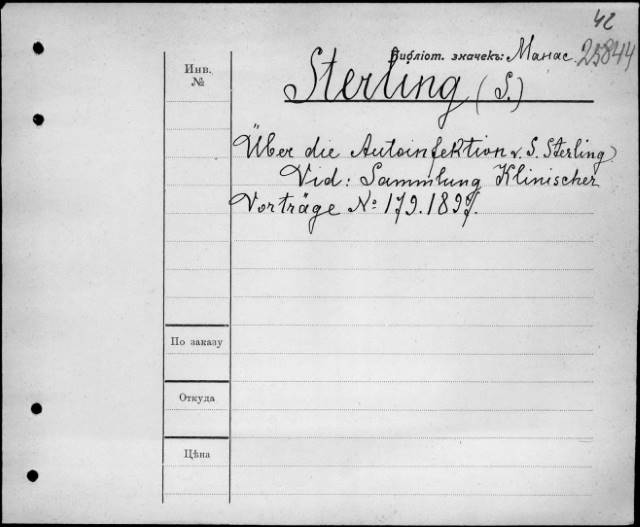 42
Библіот. значекъ: Манас. 25844
Инв.
№
Sterling (S.)
Über die Autoinfektion v. S. Sterling)
Vid: Sammlung Klinischer
Vorträge No 179. 1897.
По заказу
Откуда
Цѣна